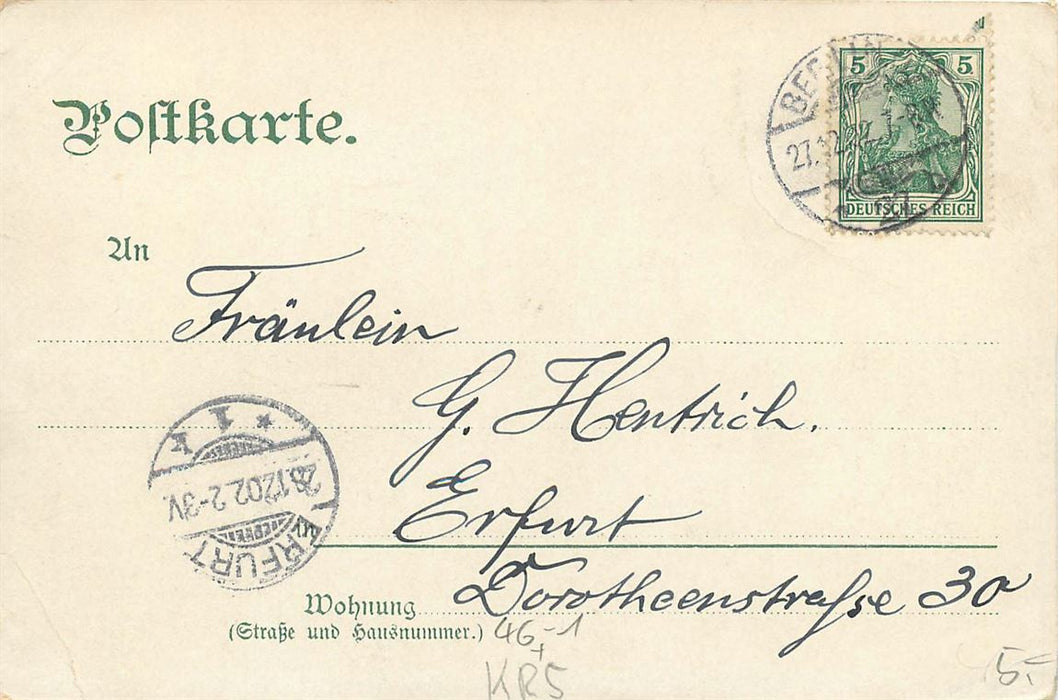 Postkarte.
BERLIN
27.12.
27
5 5
DEUTSCHES REICH
An
Fräulein
G. Hentrich.
Erfurt
Dorotheenstraſse 30
* 1 k
28.12.02. 2-3V.
ERFURT
Wohnung
(Straße und Hausnummer.)
46-1
+
KR5
5.-